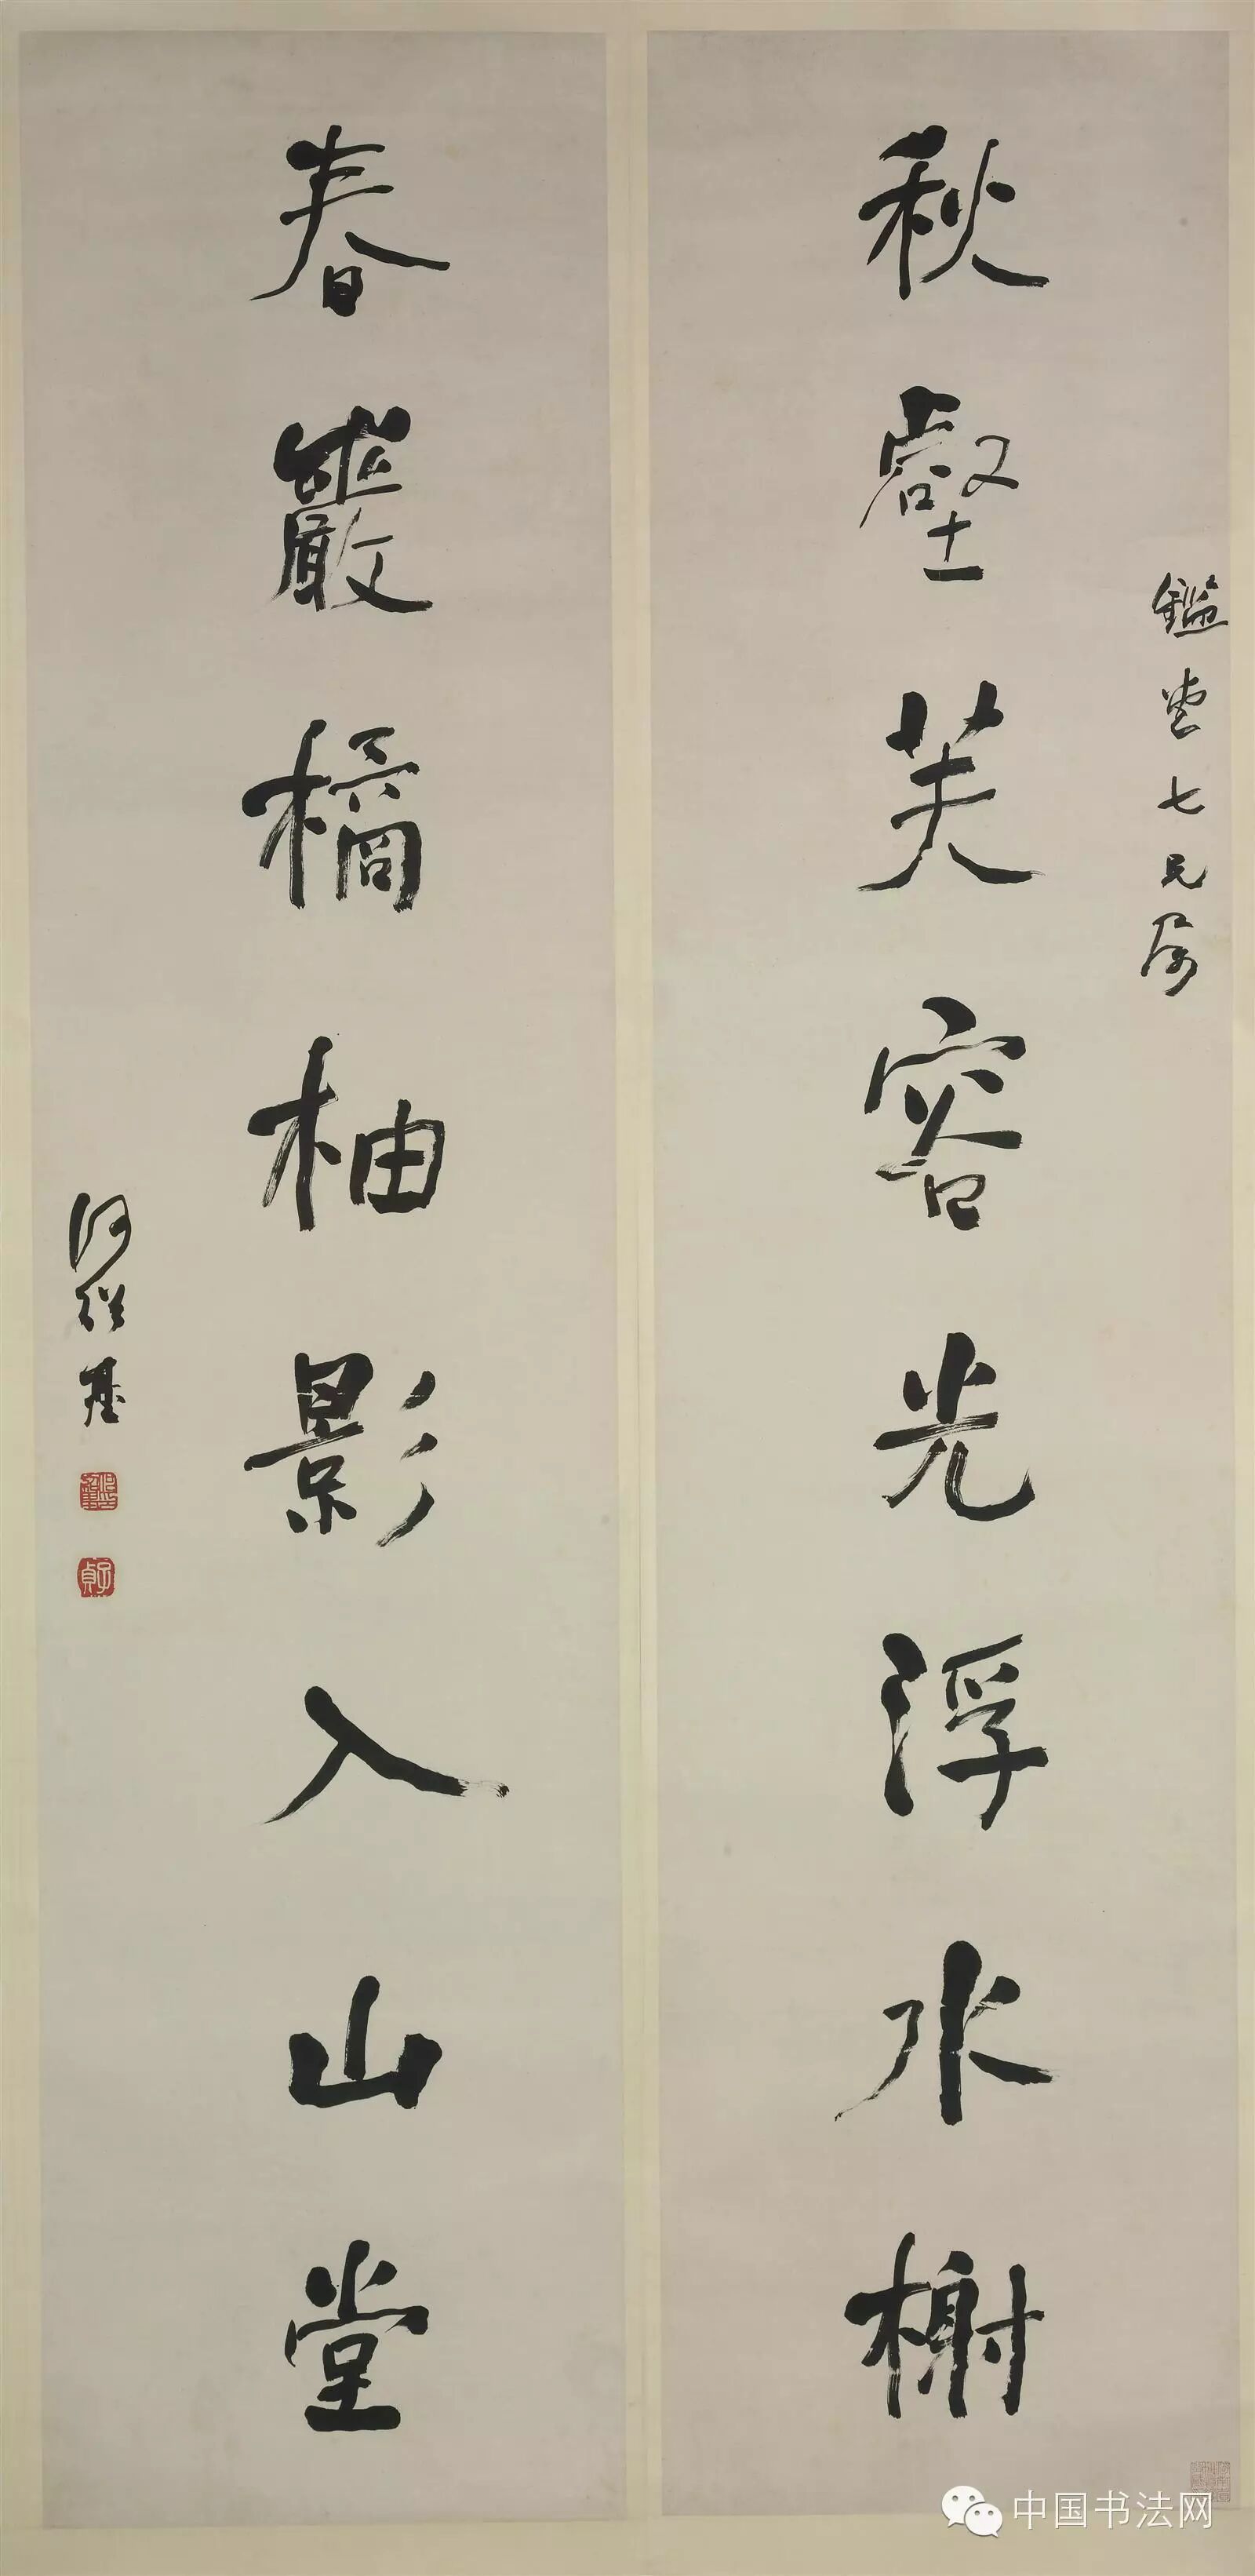 鑑堂七兄屬
秋壑芙容光浮水榭
春巖橘柚影入山堂
何紹基
子貞
中国书法网